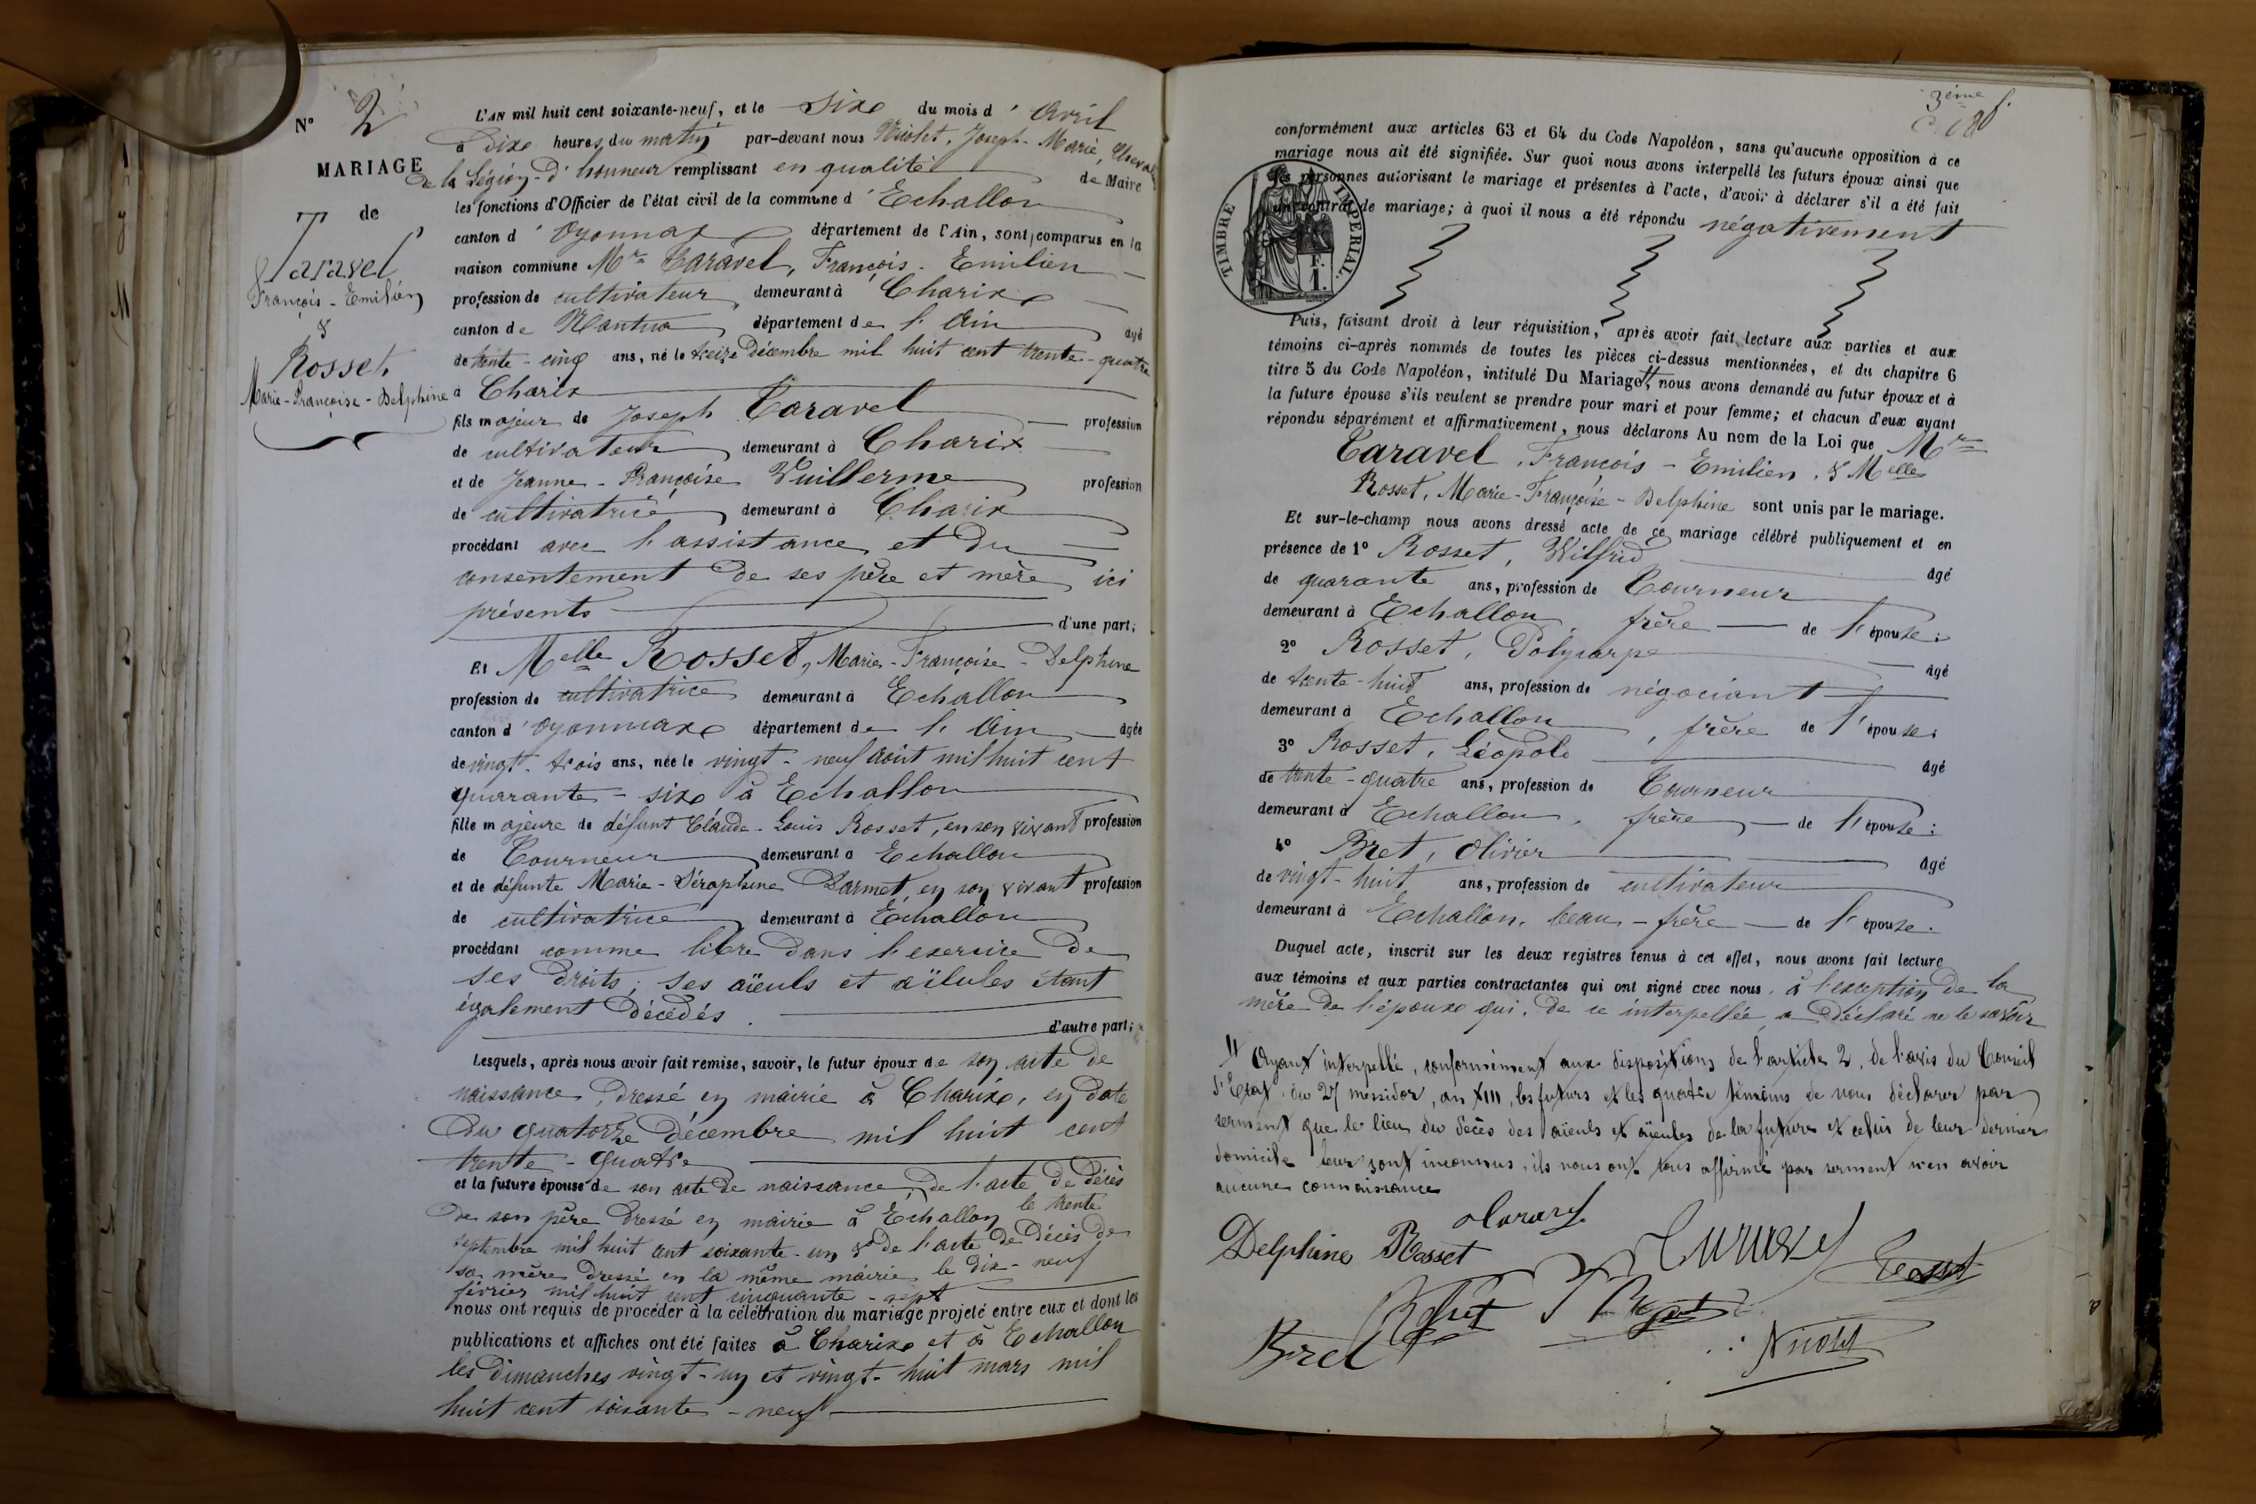 N° 2
MARIAGE
de
Caravel
François - Emilien
&
Rosset
Marie - Françoise - Delphine
L'AN mil huit cent soixante-neuf, et le Six du mois d' Avril
à dix heures du matin par-devant nous Nicolet, Joseph - Marie, Chevalier
de la Légion - d'honneur remplissant en qualité de Maire
les fonctions d'Officier de l'état civil de la commune d' Echallon
canton d' Oyonnax département de l'Ain, sont comparus en la
maison commune Mr Caravel, François - Emilien
profession de cultivateur demeurant à Charix
canton de Nantua département de l'Ain âgé
de trente - cinq ans, né le treize Décembre mil huit cent trente - quatre
à Charix
fils majeur de Joseph Caravel profession
de cultivateur demeurant à Charix
et de Jeanne - Françoise Vuillerme profession
de cultivatrice demeurant à Charix
procédant avec l'assistance et du
consentement de ses père et mère ici
présents d'une part;
Et Melle Rosset, Marie - Françoise - Delphine
profession de cultivatrice demeurant à Echallon
canton d' Oyonnax département de l'Ain âgée
de vingt - trois ans, née le vingt - neuf Août mil huit cent
quarante - six à Echallon
fille majeure de défunt Claude - Louis Rosset, en son vivant profession
de Tourneur demeurant à Echallon
et de défunte Marie - Séraphine Darmet, en son vivant profession
de cultivatrice demeurant à Echallon
procédant comme libre dans l'exercice de
ses droits; ses aïeuls et aïeules étant
également décédés. d'autre part;
Lesquels, après nous avoir fait remise, savoir, le futur époux de son acte de
naissance, dressé en mairie à Charix, en date
du quatorze décembre mil huit cent
trente - quatre
et la future épouse de son acte de naissance, de l'acte de décès
de son père dressé en mairie à Echallon le trente
septembre mil huit cent soixante - un & de l'acte de décès de
sa mère dressé en la même mairie le dix - neuf
février mil huit cent cinquante - sept
nous ont requis de procéder à la célébration du mariage projeté entre eux et dont les
publications et affiches ont été faites à Charix et à Echallon
les dimanches vingt - un et vingt - huit mars mil
huit cent soixante - neuf
3ème f.
conformément aux articles 63 et 64 du Code Napoléon, sans qu'aucune opposition à ce
mariage nous ait été signifiée. Sur quoi nous avons interpellé les futurs époux ainsi que
les personnes autorisant le mariage et présentes à l'acte, d'avoir à déclarer s'il a été fait
un contrat de mariage; à quoi il nous a été répondu négativement
TIMBRE IMPÉRIAL
F.
1.
Puis, faisant droit à leur réquisition, après avoir fait lecture aux parties et aux
témoins ci-après nommés de toutes les pièces ci-dessus mentionnées, et du chapitre 6
titre 5 du Code Napoléon, intitulé Du Mariage, // nous avons demandé au futur époux et à
la future épouse s'ils veulent se prendre pour mari et pour femme; et chacun d'eux ayant
répondu séparément et affirmativement, nous déclarons Au nom de la Loi que Mr
Caravel, François - Emilien, & Melle
Rosset, Marie - Françoise - Delphine sont unis par le mariage.
Et sur-le-champ nous avons dressé acte de ce mariage célébré publiquement et en
présence de 1° Rosset, Wilfrid âgé
de quarante ans, profession de Tourneur
demeurant à Echallon, frère de l'épouse:
2° Rosset, Polycarpe âgé
de trente - huit ans, profession de négociant
demeurant à Echallon, frère de l'épouse:
3° Rosset, Léopold âgé
de trente - quatre ans, profession de Tourneur
demeurant à Echallon, frère de l'épouse:
4° Bret, Olivier âgé
de vingt - huit ans, profession de cultivateur
demeurant à Echallon, beau - frère de l'épouse.
Duquel acte, inscrit sur les deux registres tenus à cet effet, nous avons fait lecture
aux témoins et aux parties contractantes qui ont signé avec nous, à l'exception de la
mère de l'époux qui, de ce interpellée, a déclaré ne le savoir
// Ayant interpellé, conformément aux dispositions de l'article 2, de l'avis du Conseil
d'Etat, du 27 messidor, an XIII, les futurs et les quatre témoins de nous déclarer par
serment que le lieu du décès des aïeuls et aïeules de la future et celui de leur dernier
domicile leur sont inconnus, ils nous ont tous affirmé par serment n'en avoir
aucune connaissance
Caravel
Delphine Rosset Caravel Rosset
Rosset
Bret Nicolet